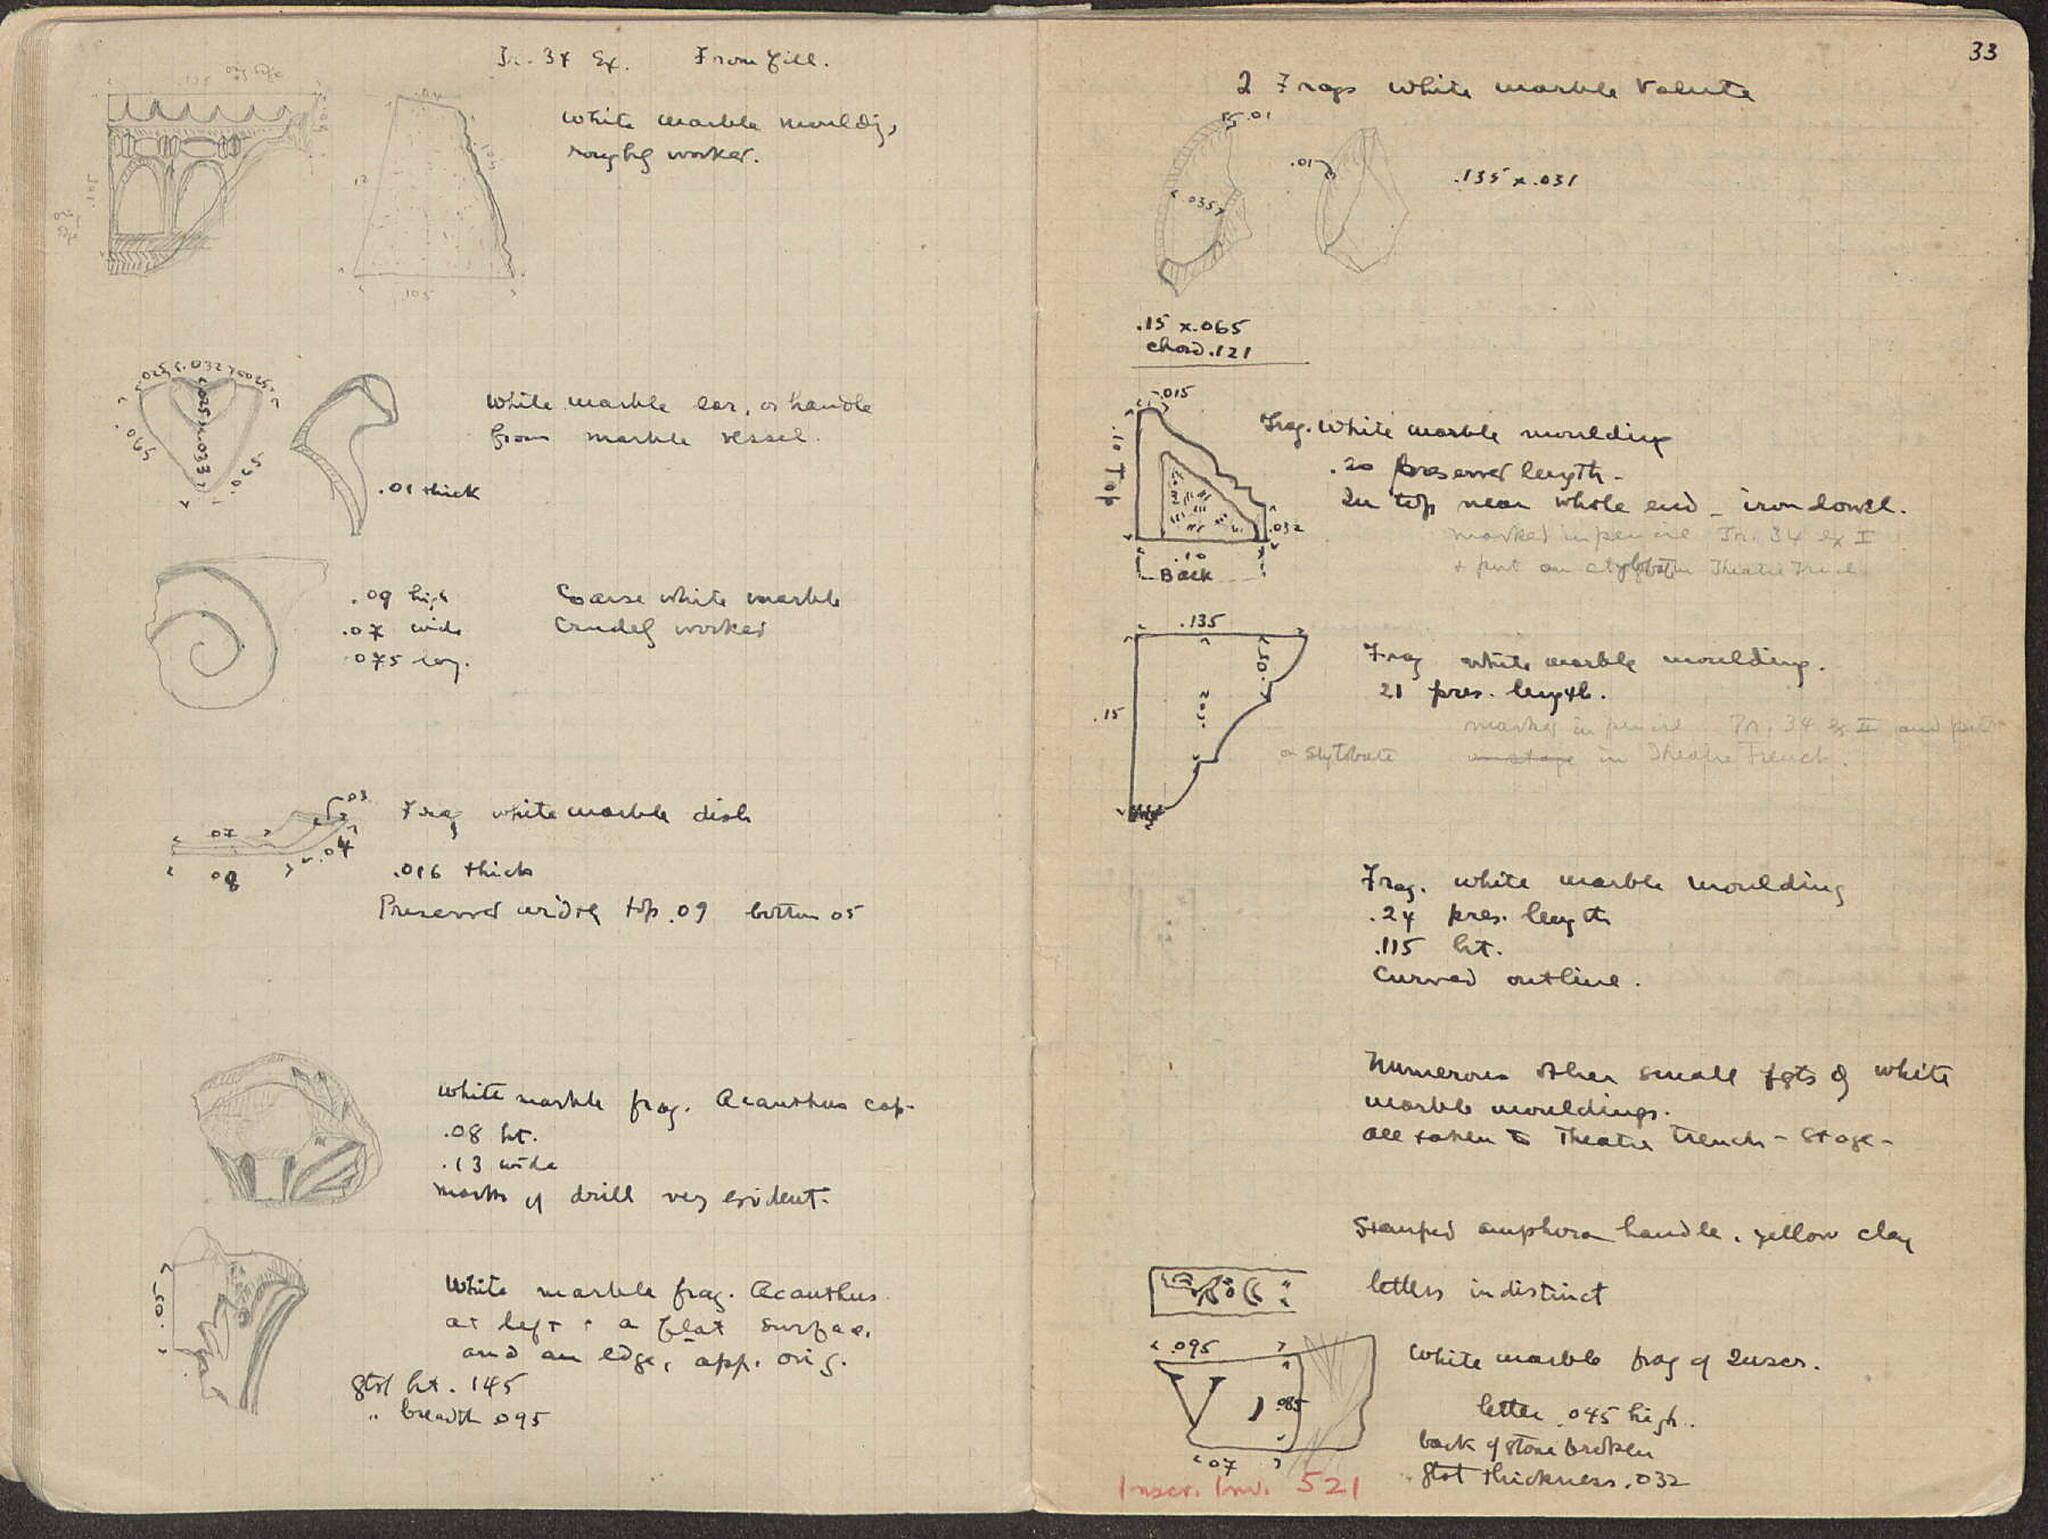 Tr. 34 Ex. From fill.
White marble mouldg,
roughly worked.
.12
.105
.105
.025 .032 .025
.025
.033
.065
.065
White marble ear, or handle
from marble vessel.
.01 thick
.09 high
.07 wide
.075 long.
Coarse white marble
Crudely worked
.03
.07
.04
.08
Frag white marble dish
.016 thick
Preserved width top .09 bottom 05
White marble frag. Acanthus cap.
.08 ht.
.13 wide
marks of drill very evident.
.05
White marble frag. Acanthus
at left + a flat surface,
and an edge, app. orig.
gtst ht. .145
" breadth .095
33
2 Frags white marble Volute
.01
.01
.035
.135 x .031
.15 x .065
chord .121
.015
.10 Top
.032
.10
Back
Frag. White marble moulding
.20 preserved length.
In top near whole end - iron dowel.
marked in pencil Tr. 34 ex I
+ put on stylobate in Theatre Trench
.135
.05
.15
.102
Frag white marble moulding.
21 pres. length.
marked in pencil Tr. 34 Ex II and put
on stylobate on stage in Theatre Trench.
Frag. white marble moulding
.24 pres. length
.115 ht.
Curved outline.
Numerous other small fgts of white
marble mouldings.
All taken to Theatre trench - Stage -
Stamped amphora handle. yellow clay
letters indistinct
.095
.085
.07
White marble frag of Inscr.
letter .045 high.
back of stone broken
gtst thickness .032
Inscr. Inv. 521